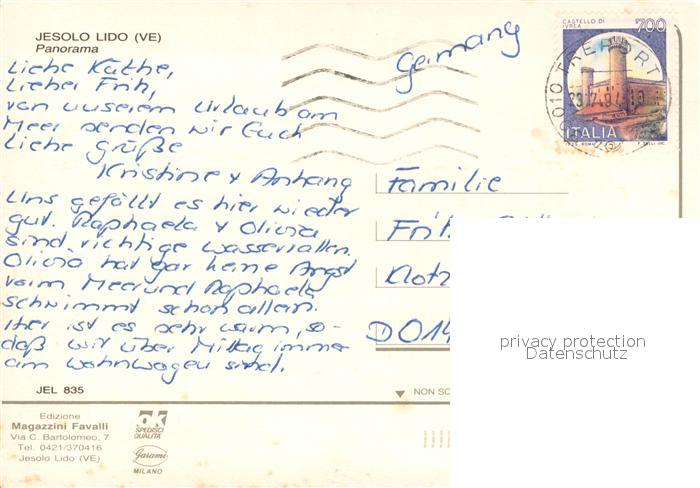 JESOLO LIDO (VE)
Panorama
Liebe Käthe,
Lieber Fritz,
von unserem Urlaub am
Meer senden wir Euch
liebe Grüße
Kristine + Anhang
Uns gefällt es hier wieder
gut. Raphaela + Olivia
sind richtige Wasserratten.
Olivia hat gar keine Angst
vorm Meer und Raphaela
schwimmt schon allein.
Hier ist es sehr warm, so-
daß wir über Mittag immer
am Wohnwagen sind.
JEL 835
Edizione
Magazzini Favalli
Via C. Bartolomeo, 7
Tel. 0421/370416
Jesolo Lido (VE)
OK
SPEDISCI
QUALITÀ
Garami
MILANO
Germany
CASTELLO DI
IVREA
700
ITALIA
Familie
Fritz
Klotz
D 014
NON SC
privacy protection
Datenschutz